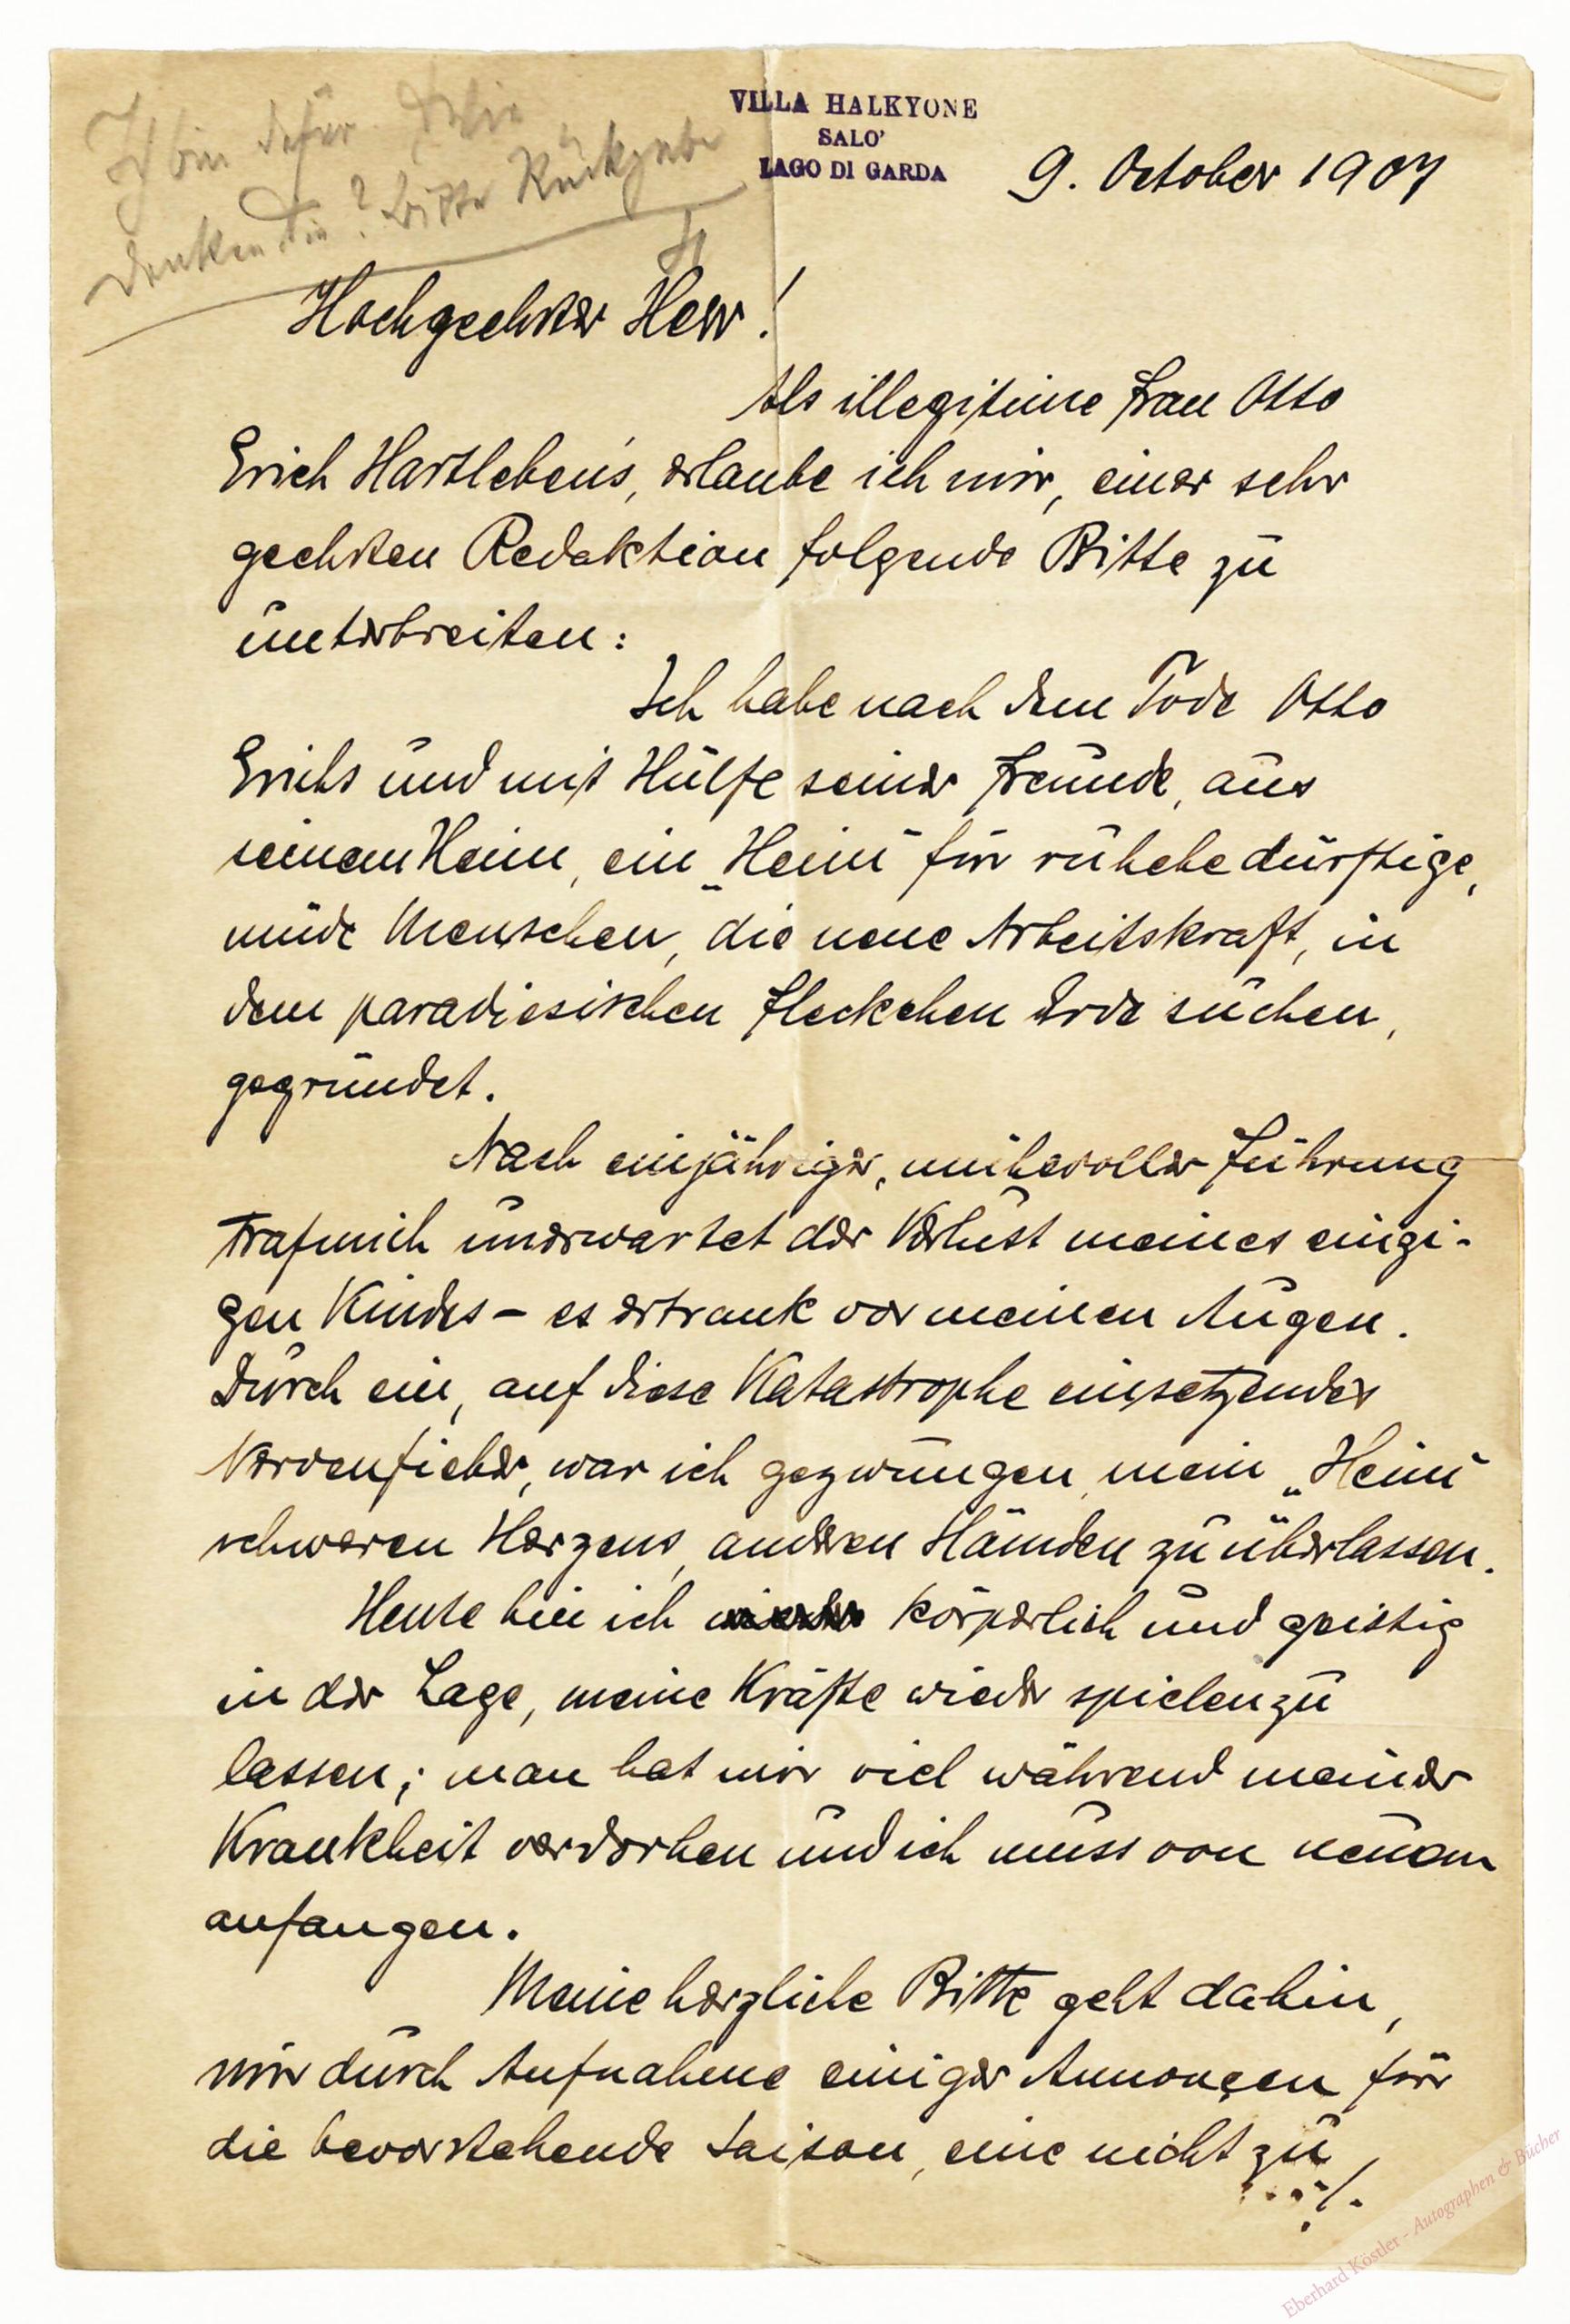 VILLA HALKYONE
SALO'
LAGO DI GARDA
9. October 1907
Ich bin dafür. Wie
denken Sie? Bitte Rückgabe
Hochgeehrter Herr!
Als illegitime Frau Otto
Erich Hartleben's, erlaube ich mir, einer sehr
geehrten Redaktion folgende Bitte zu
unterbreiten:
Ich habe nach dem Tode Otto
Erichs und mit Hülfe seiner Freunde, aus
seinem Heim, ein „Heim" für ruhebedürftige,
müde Menschen, die neue Arbeitskraft, in
dem paradiesischen Fleckchen Erde suchen,
gegründet.
Nach einjähriger, mühevoller Führung
traf mich unerwartet der Verlust meines einzi-
gen Kindes – es ertrank vor meinen Augen.
Durch ein, auf diese Katastrophe einsetzendes
Nervenfieber, war ich gezwungen, mein „Heim"
schweren Herzens, anderen Händen zu überlassen.
Heute bin ich körperlich und geistig
in der Lage, meine Kräfte wieder spielen zu
lassen; man hat mir viel während meiner
Krankheit verdorben und ich muss von neuem
anfangen.
Meine herzliche Bitte geht dahin,
mir durch Aufnahme einiger Annonçen für
die bevorstehende Saison, eine nicht zu
./.
Eberhard Köstler - Autographen & Bücher